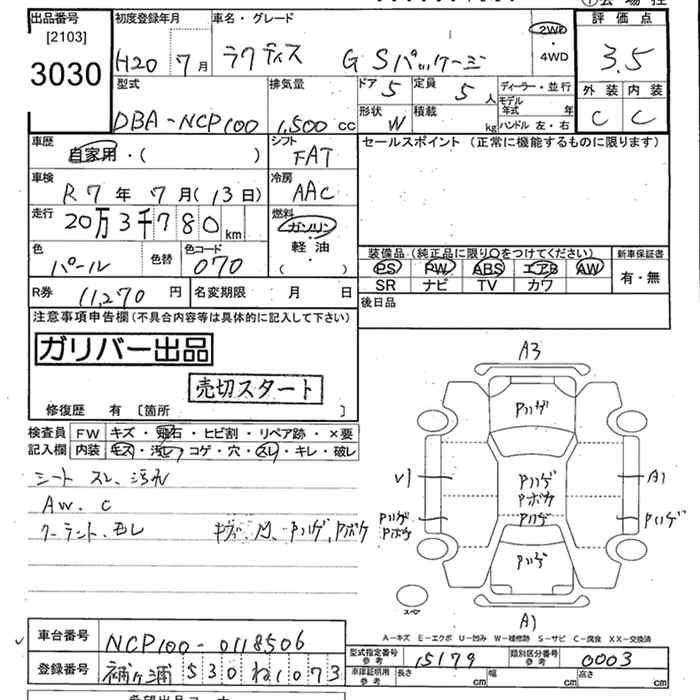 出品番号
[2103]
3030
初度登録年月
H20 7月
車名・グレード
ラクティス G Sパッケージ
2WD
・
4WD
評価点
3.5
外装 内装
C C
型式
DBA-NCP100
排気量
1,500 cc
ドア 5
定員 5人
形状 W
積載 kg
ディーラー・並行
モデル年式 年
ハンドル 左・右
車歴
自家用・( )
シフト
FAT
セールスポイント (正常に機能するものに限ります)
車検
R7年 7月(13日)
冷房
AAC
走行
20万3千780km
燃料
ガソリン
・
軽油
( )
色
パール
色替
色コード
070
装備品 (純正品に限り○をつけてください)
新車保証書
PS PW ABS エアB AW
SR ナビ TV カワ
有・無
R券 11,270円
名変期限 月 日
後日品
注意事項申告欄 (不具合内容等は具体的に記入して下さい)
ガリバー出品
売切スタート
修復歴 有 [箇所 ]
検査員
記入欄
FW キズ・飛石・ヒビ割・リペア跡・×要
内装 モス・汚レ・コゲ・穴・スレ・キレ・破レ
シート スレ、汚れ
AW. C
クーラント.モレ
Pハゲ、Pボケ
A3
Pハゲ
V1
Pハゲ
Pボケ
Pハゲ
A1
Pハゲ
Pボケ
Pハゲ
Pハゲ
A1
スペア
A-キズ E-エクボ U-凹み W-補修跡 S-サビ C-腐食 XX-交換済
車台番号
NCP100-0118506
登録番号
530 ね 1073
型式指定番号
参考
15179
類別区分番号
参考
0003
車庫証明用
参考
長さ cm
幅 cm
高さ cm